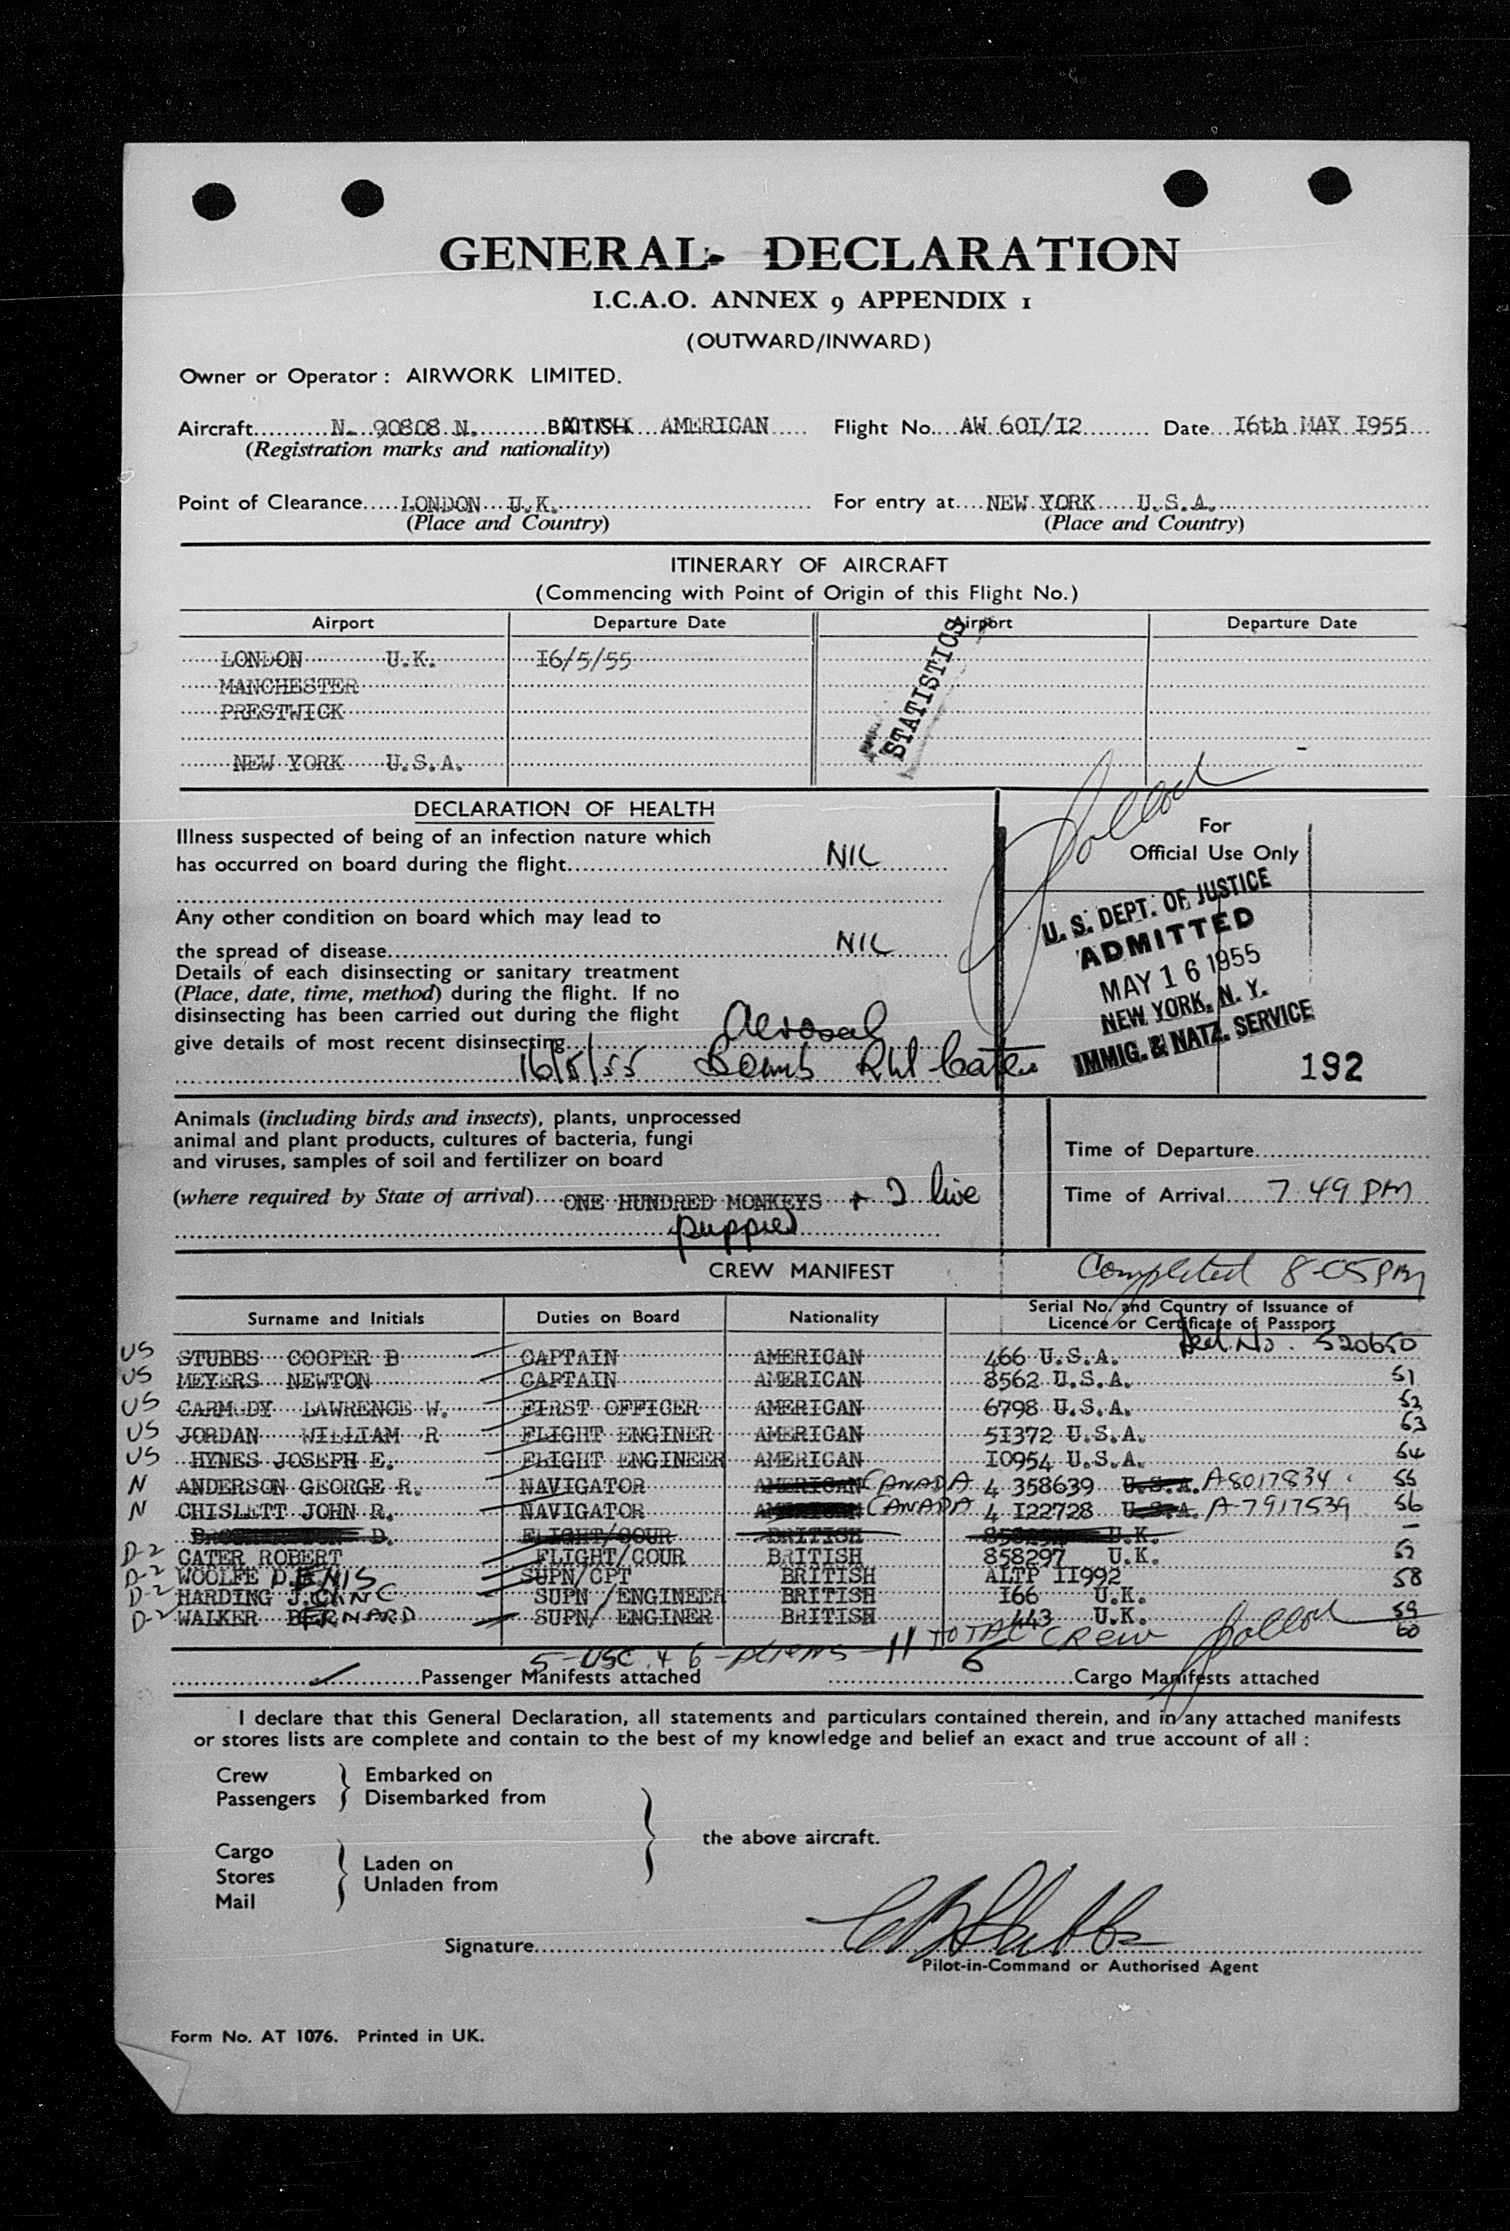 GENERAL DECLARATION
I.C.A.O. ANNEX 9 APPENDIX 1
(OUTWARD/INWARD)
Owner or Operator : AIRWORK LIMITED.
Aircraft N. 90808 N. BRITISH AMERICAN Flight No. AW 60I/I2 Date I6th MAY I955
(Registration marks and nationality)
Point of Clearance LONDON U.K. For entry at NEW YORK U.S.A.
(Place and Country) (Place and Country)
ITINERARY OF AIRCRAFT
(Commencing with Point of Origin of this Flight No.)
Airport Departure Date Airport Departure Date
LONDON U.K. I6/5/55
MANCHESTER
PRESTWICK
NEW YORK U.S.A.
STATISTICS
DECLARATION OF HEALTH
Illness suspected of being of an infection nature which
has occurred on board during the flight NIL
Any other condition on board which may lead to
the spread of disease NIL
Details of each disinsecting or sanitary treatment
(Place, date, time, method) during the flight. If no
disinsecting has been carried out during the flight
give details of most recent disinsecting Aerosal
16/5/55 Bomb Cater
For
Official Use Only
U. S. DEPT. OF JUSTICE
ADMITTED
MAY 16 1955
NEW YORK, N. Y.
IMMIG. & NATZ. SERVICE
192
Animals (including birds and insects), plants, unprocessed
animal and plant products, cultures of bacteria, fungi
and viruses, samples of soil and fertilizer on board
(where required by State of arrival) ONE HUNDRED MONKEYS + 2 live
puppies
Time of Departure
Time of Arrival 7 49 PM
Completed 8-05 PM
CREW MANIFEST
Surname and Initials Duties on Board Nationality Serial No. and Country of Issuance of
Licence or Certificate of Passport
US STUBBS COOPER B CAPTAIN AMERICAN 466 U.S.A. No. 520650
US MEYERS NEWTON CAPTAIN AMERICAN 8562 U.S.A. 51
US CARMODY LAWRENCE W. FIRST OFFICER AMERICAN 6798 U.S.A. 52
US JORDAN WILLIAM R FLIGHT ENGINER AMERICAN 5I372 U.S.A. 53
US HYNES JOSEPH E. FLIGHT ENGINEER AMERICAN I0954 U.S.A. 54
N ANDERSON GEORGE R. NAVIGATOR AMERICAN CANADA 4 358639 U.S.A. A8017834 55
N CHISLETT JOHN R. NAVIGATOR CANADA 4 I22728 U.S.A. A-7917539 56
D. FLIGHT/COUR BRITISH U.K.
D-2 CATER ROBERT FLIGHT/COUR BRITISH 858297 U.K. 57
D-2 WOOLFE DENIS SUPN/CPT BRITISH ALTP II992 58
D-2 HARDING J. SUPN /ENGINEER BRITISH I66 U.K. 59
D-2 WALKER BERNARD SUPN/ ENGINER BRITISH 443 U.K. 60
5-USC. & 6-ALIENS - 11 TOTAL CREW
Passenger Manifests attached 6 Cargo Manifests attached
I declare that this General Declaration, all statements and particulars contained therein, and in any attached manifests
or stores lists are complete and contain to the best of my knowledge and belief an exact and true account of all :
Crew Embarked on
Passengers Disembarked from
the above aircraft.
Cargo
Stores Laden on
Mail Unladen from
Signature CB Stubbs
Pilot-in-Command or Authorised Agent
Form No. AT 1076. Printed in UK.